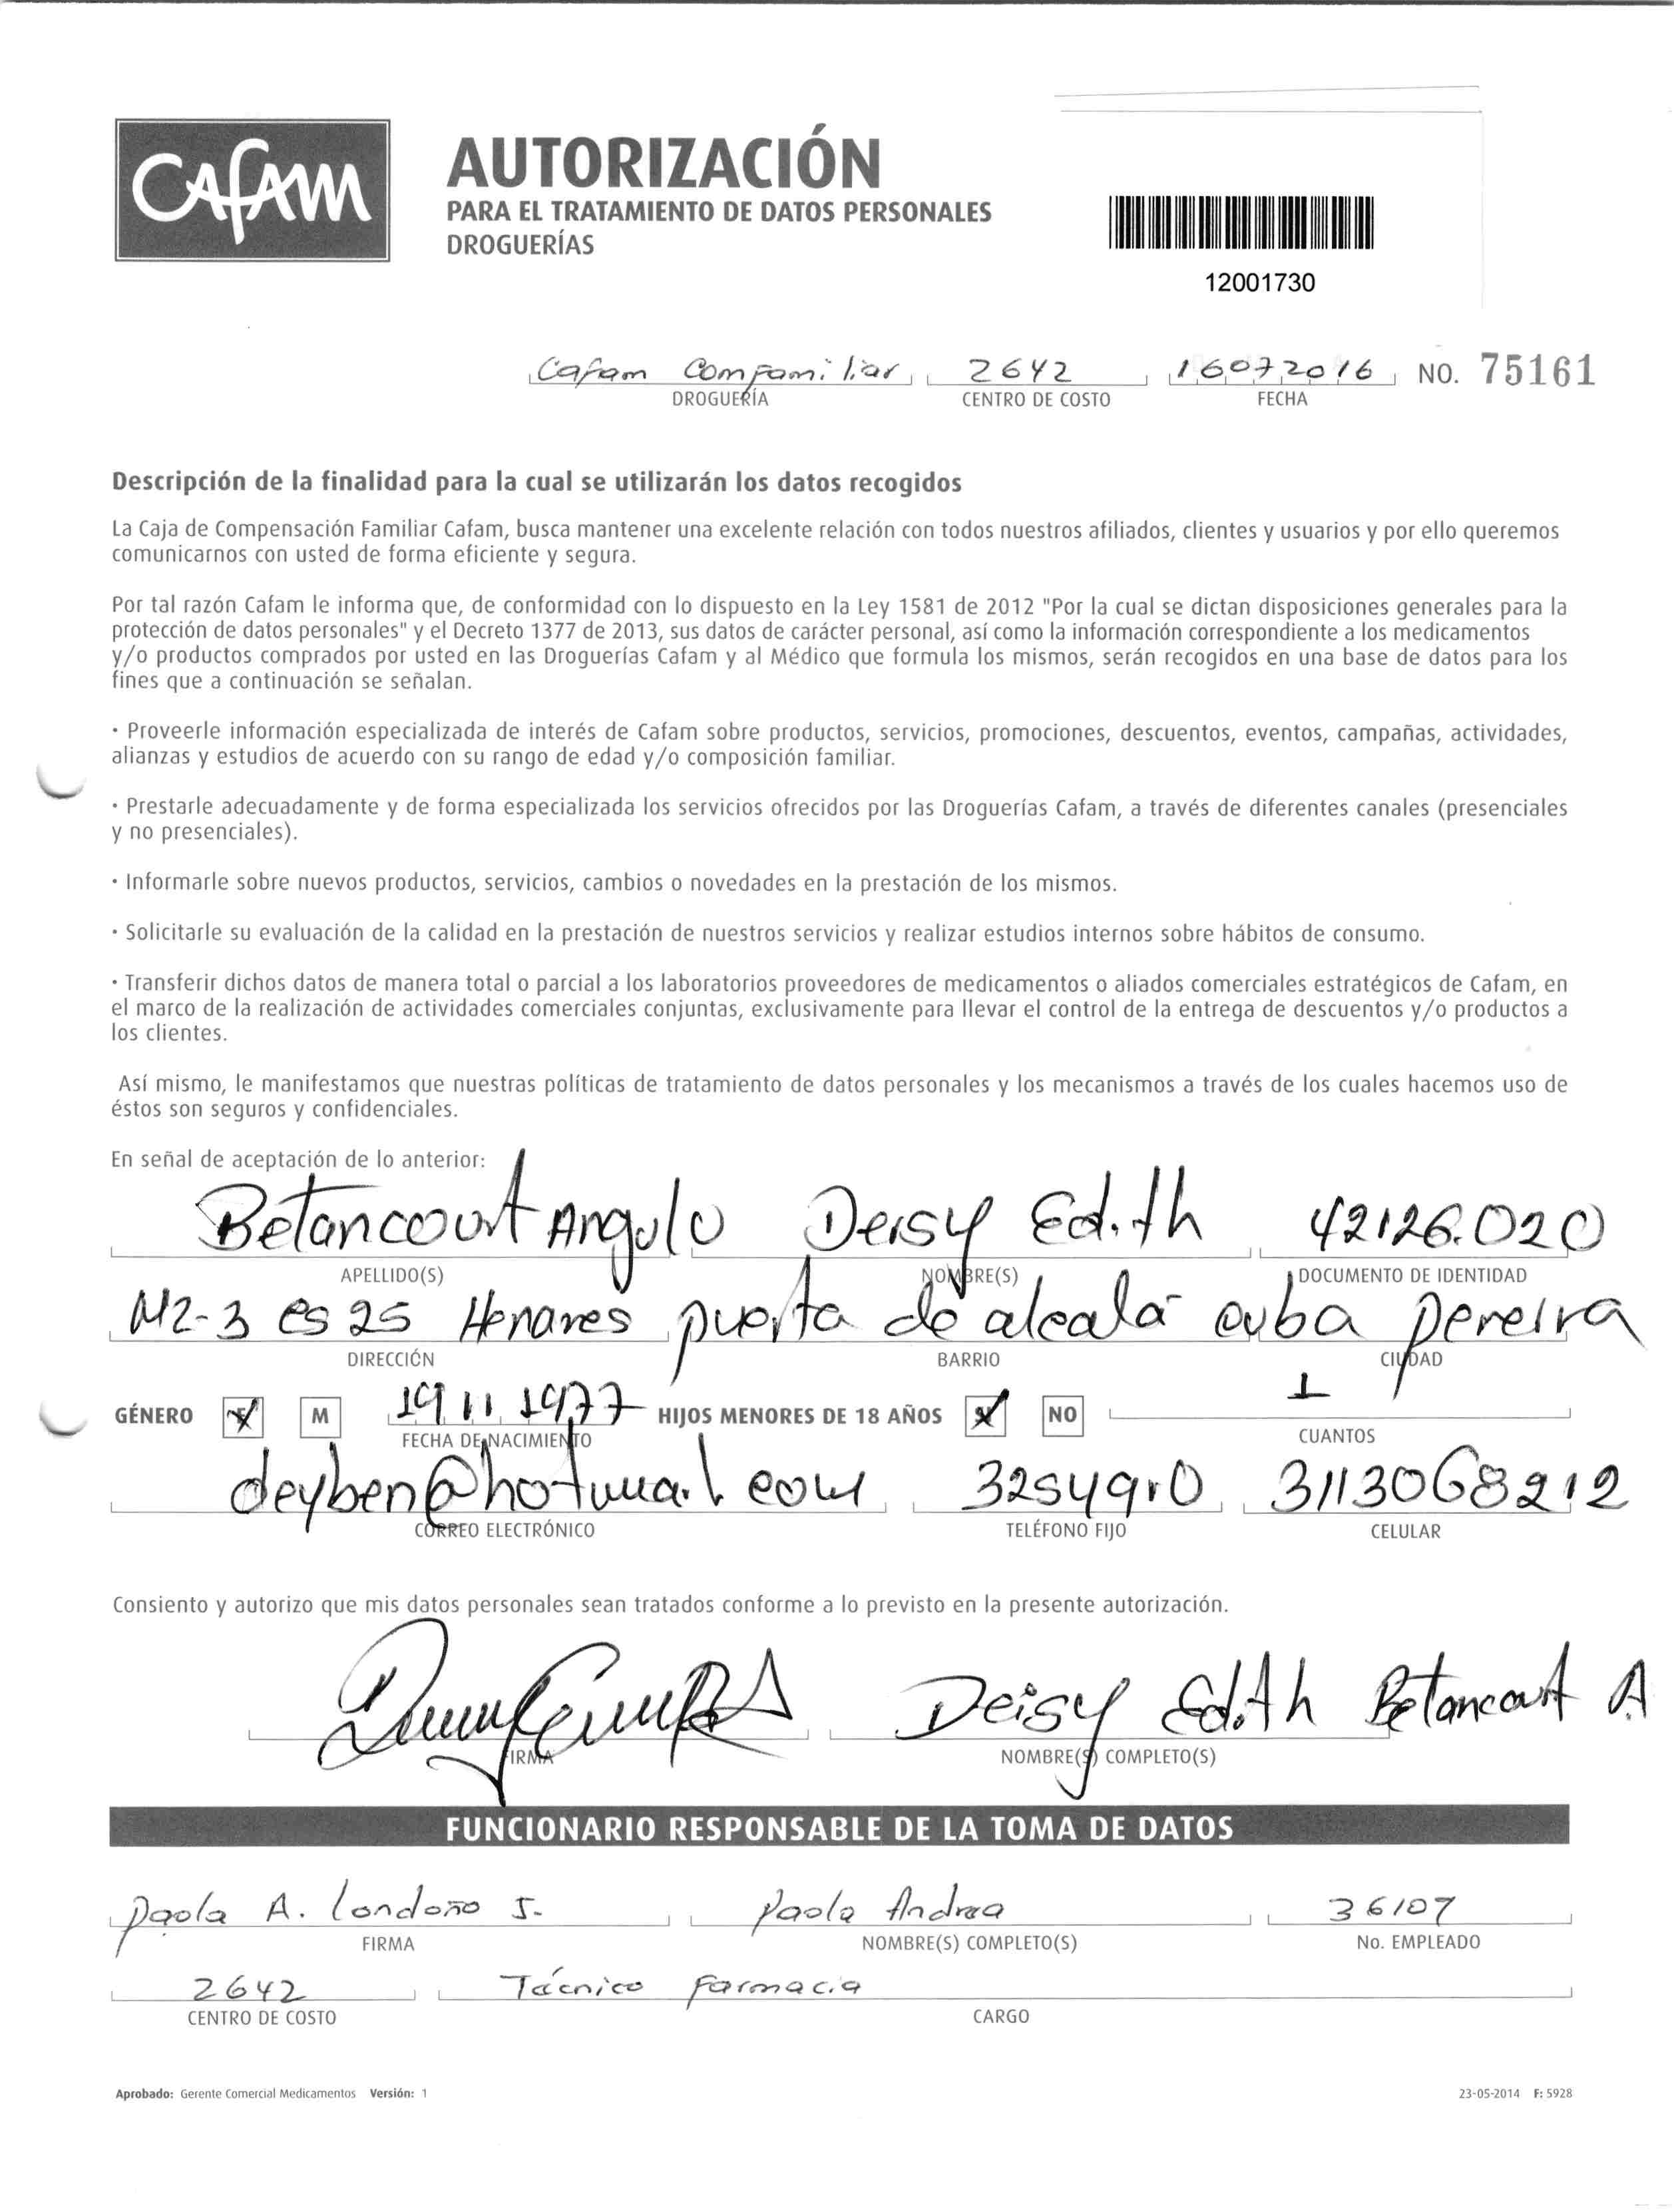 CAFAM
AUTORIZACIÓN
PARA EL TRATAMIENTO DE DATOS PERSONALES
DROGUERÍAS
12001730
Cafam Comfamiliar 2642 16072016 NO. 75161
DROGUERÍA CENTRO DE COSTO FECHA
Descripción de la finalidad para la cual se utilizarán los datos recogidos
La Caja de Compensación Familiar Cafam, busca mantener una excelente relación con todos nuestros afiliados, clientes y usuarios y por ello queremos
comunicarnos con usted de forma eficiente y segura.
Por tal razón Cafam le informa que, de conformidad con lo dispuesto en la Ley 1581 de 2012 "Por la cual se dictan disposiciones generales para la
protección de datos personales" y el Decreto 1377 de 2013, sus datos de carácter personal, así como la información correspondiente a los medicamentos
y/o productos comprados por usted en las Droguerías Cafam y al Médico que formula los mismos, serán recogidos en una base de datos para los
fines que a continuación se señalan.
· Proveerle información especializada de interés de Cafam sobre productos, servicios, promociones, descuentos, eventos, campañas, actividades,
alianzas y estudios de acuerdo con su rango de edad y/o composición familiar.
· Prestarle adecuadamente y de forma especializada los servicios ofrecidos por las Droguerías Cafam, a través de diferentes canales (presenciales
y no presenciales).
· Informarle sobre nuevos productos, servicios, cambios o novedades en la prestación de los mismos.
· Solicitarle su evaluación de la calidad en la prestación de nuestros servicios y realizar estudios internos sobre hábitos de consumo.
· Transferir dichos datos de manera total o parcial a los laboratorios proveedores de medicamentos o aliados comerciales estratégicos de Cafam, en
el marco de la realización de actividades comerciales conjuntas, exclusivamente para llevar el control de la entrega de descuentos y/o productos a
los clientes.
Así mismo, le manifestamos que nuestras políticas de tratamiento de datos personales y los mecanismos a través de los cuales hacemos uso de
éstos son seguros y confidenciales.
En señal de aceptación de lo anterior:
Betancourt Angulo Deisy Edith 42126.020
APELLIDO(S) NOMBRE(S) DOCUMENTO DE IDENTIDAD
Mz-3 cs 25 Henares puerta de alcala cuba pereira
DIRECCIÓN BARRIO CIUDAD
GÉNERO M 19 11 1977 HIJOS MENORES DE 18 AÑOS SI NO 1
FECHA DE NACIMIENTO CUANTOS
deyben@hotmail.com 3254910 3113068212
CORREO ELECTRÓNICO TELÉFONO FIJO CELULAR
Consiento y autorizo que mis datos personales sean tratados conforme a lo previsto en la presente autorización.
Deisy Edith Betancourt A
FIRMA NOMBRE(S) COMPLETO(S)
FUNCIONARIO RESPONSABLE DE LA TOMA DE DATOS
Paola A. Londoño J. Paola Andrea 36107
FIRMA NOMBRE(S) COMPLETO(S) No. EMPLEADO
2642 Técnico Farmacia
CENTRO DE COSTO CARGO
Aprobado: Gerente Comercial Medicamentos Versión: 1 23-05-2014 F: 5928